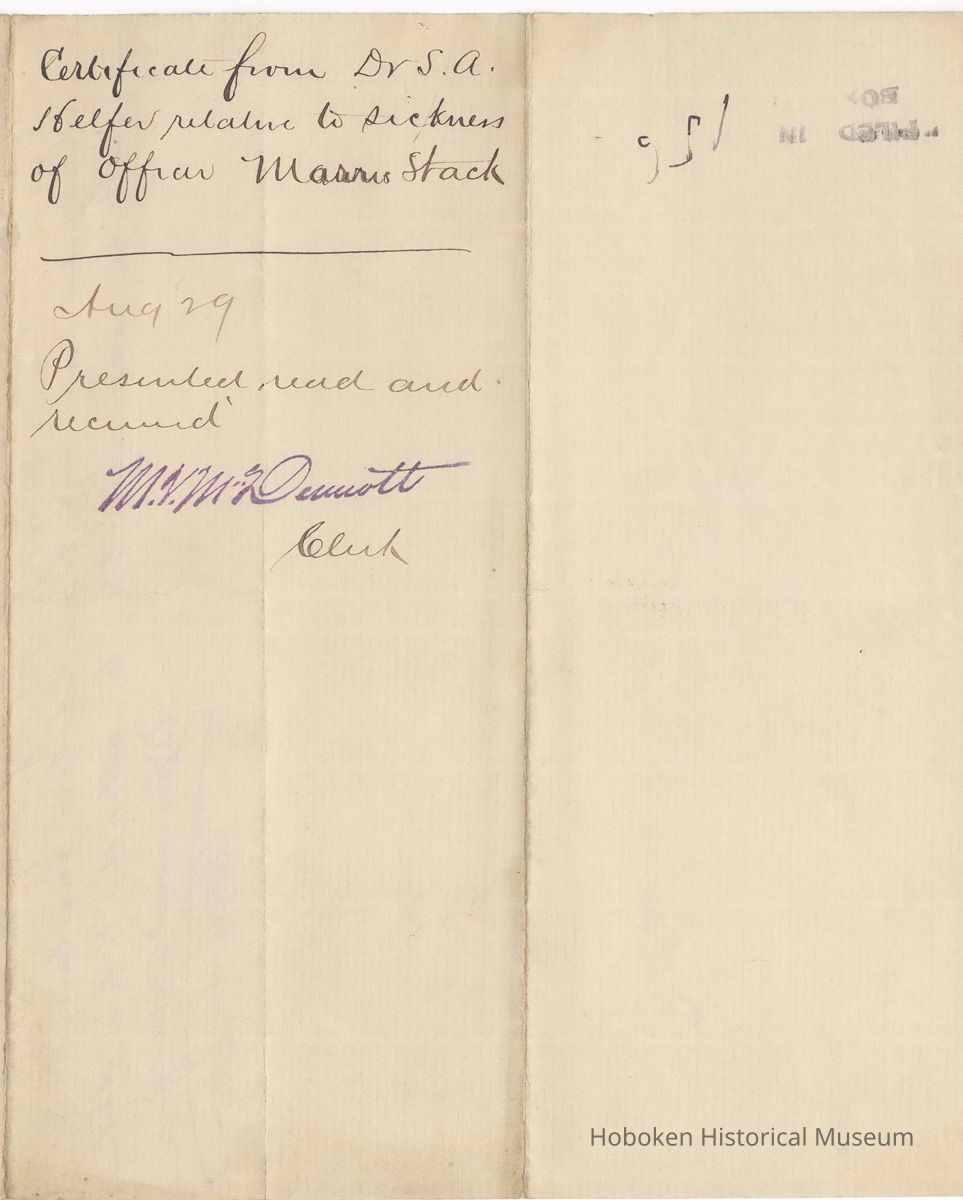 Certificate from Dr S. A.
Helfer relative to sickness
of Officer Morris Stack
Aug 29
Presented, read and
received
M. V. McDermott
Clerk
FILED IN
Hoboken Historical Museum